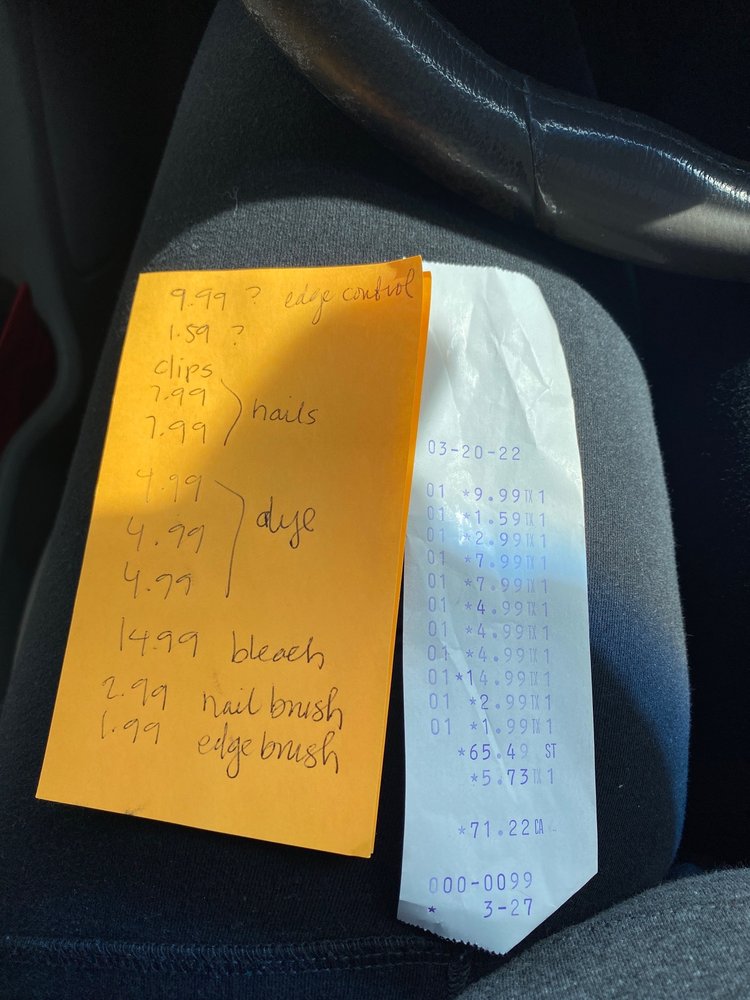 9.99 ? edge control
1.59 ?
clips
7.99
7.99
nails
4.99
4.99
4.99
dye
14.99 bleach
2.99 nail brush
1.99 edge brush
03-20-22
01 *9.99TX1
01 *1.59TX1
01 *2.99TX1
01 *7.99TX1
01 *7.99TX1
01 *4.99TX1
01 *4.99TX1
01 *4.99TX1
01*14.99TX1
01 *2.99TX1
01 *1.99TX1
*65.49 ST
*5.73TX1
*71.22CA
000-0099
* 3-27